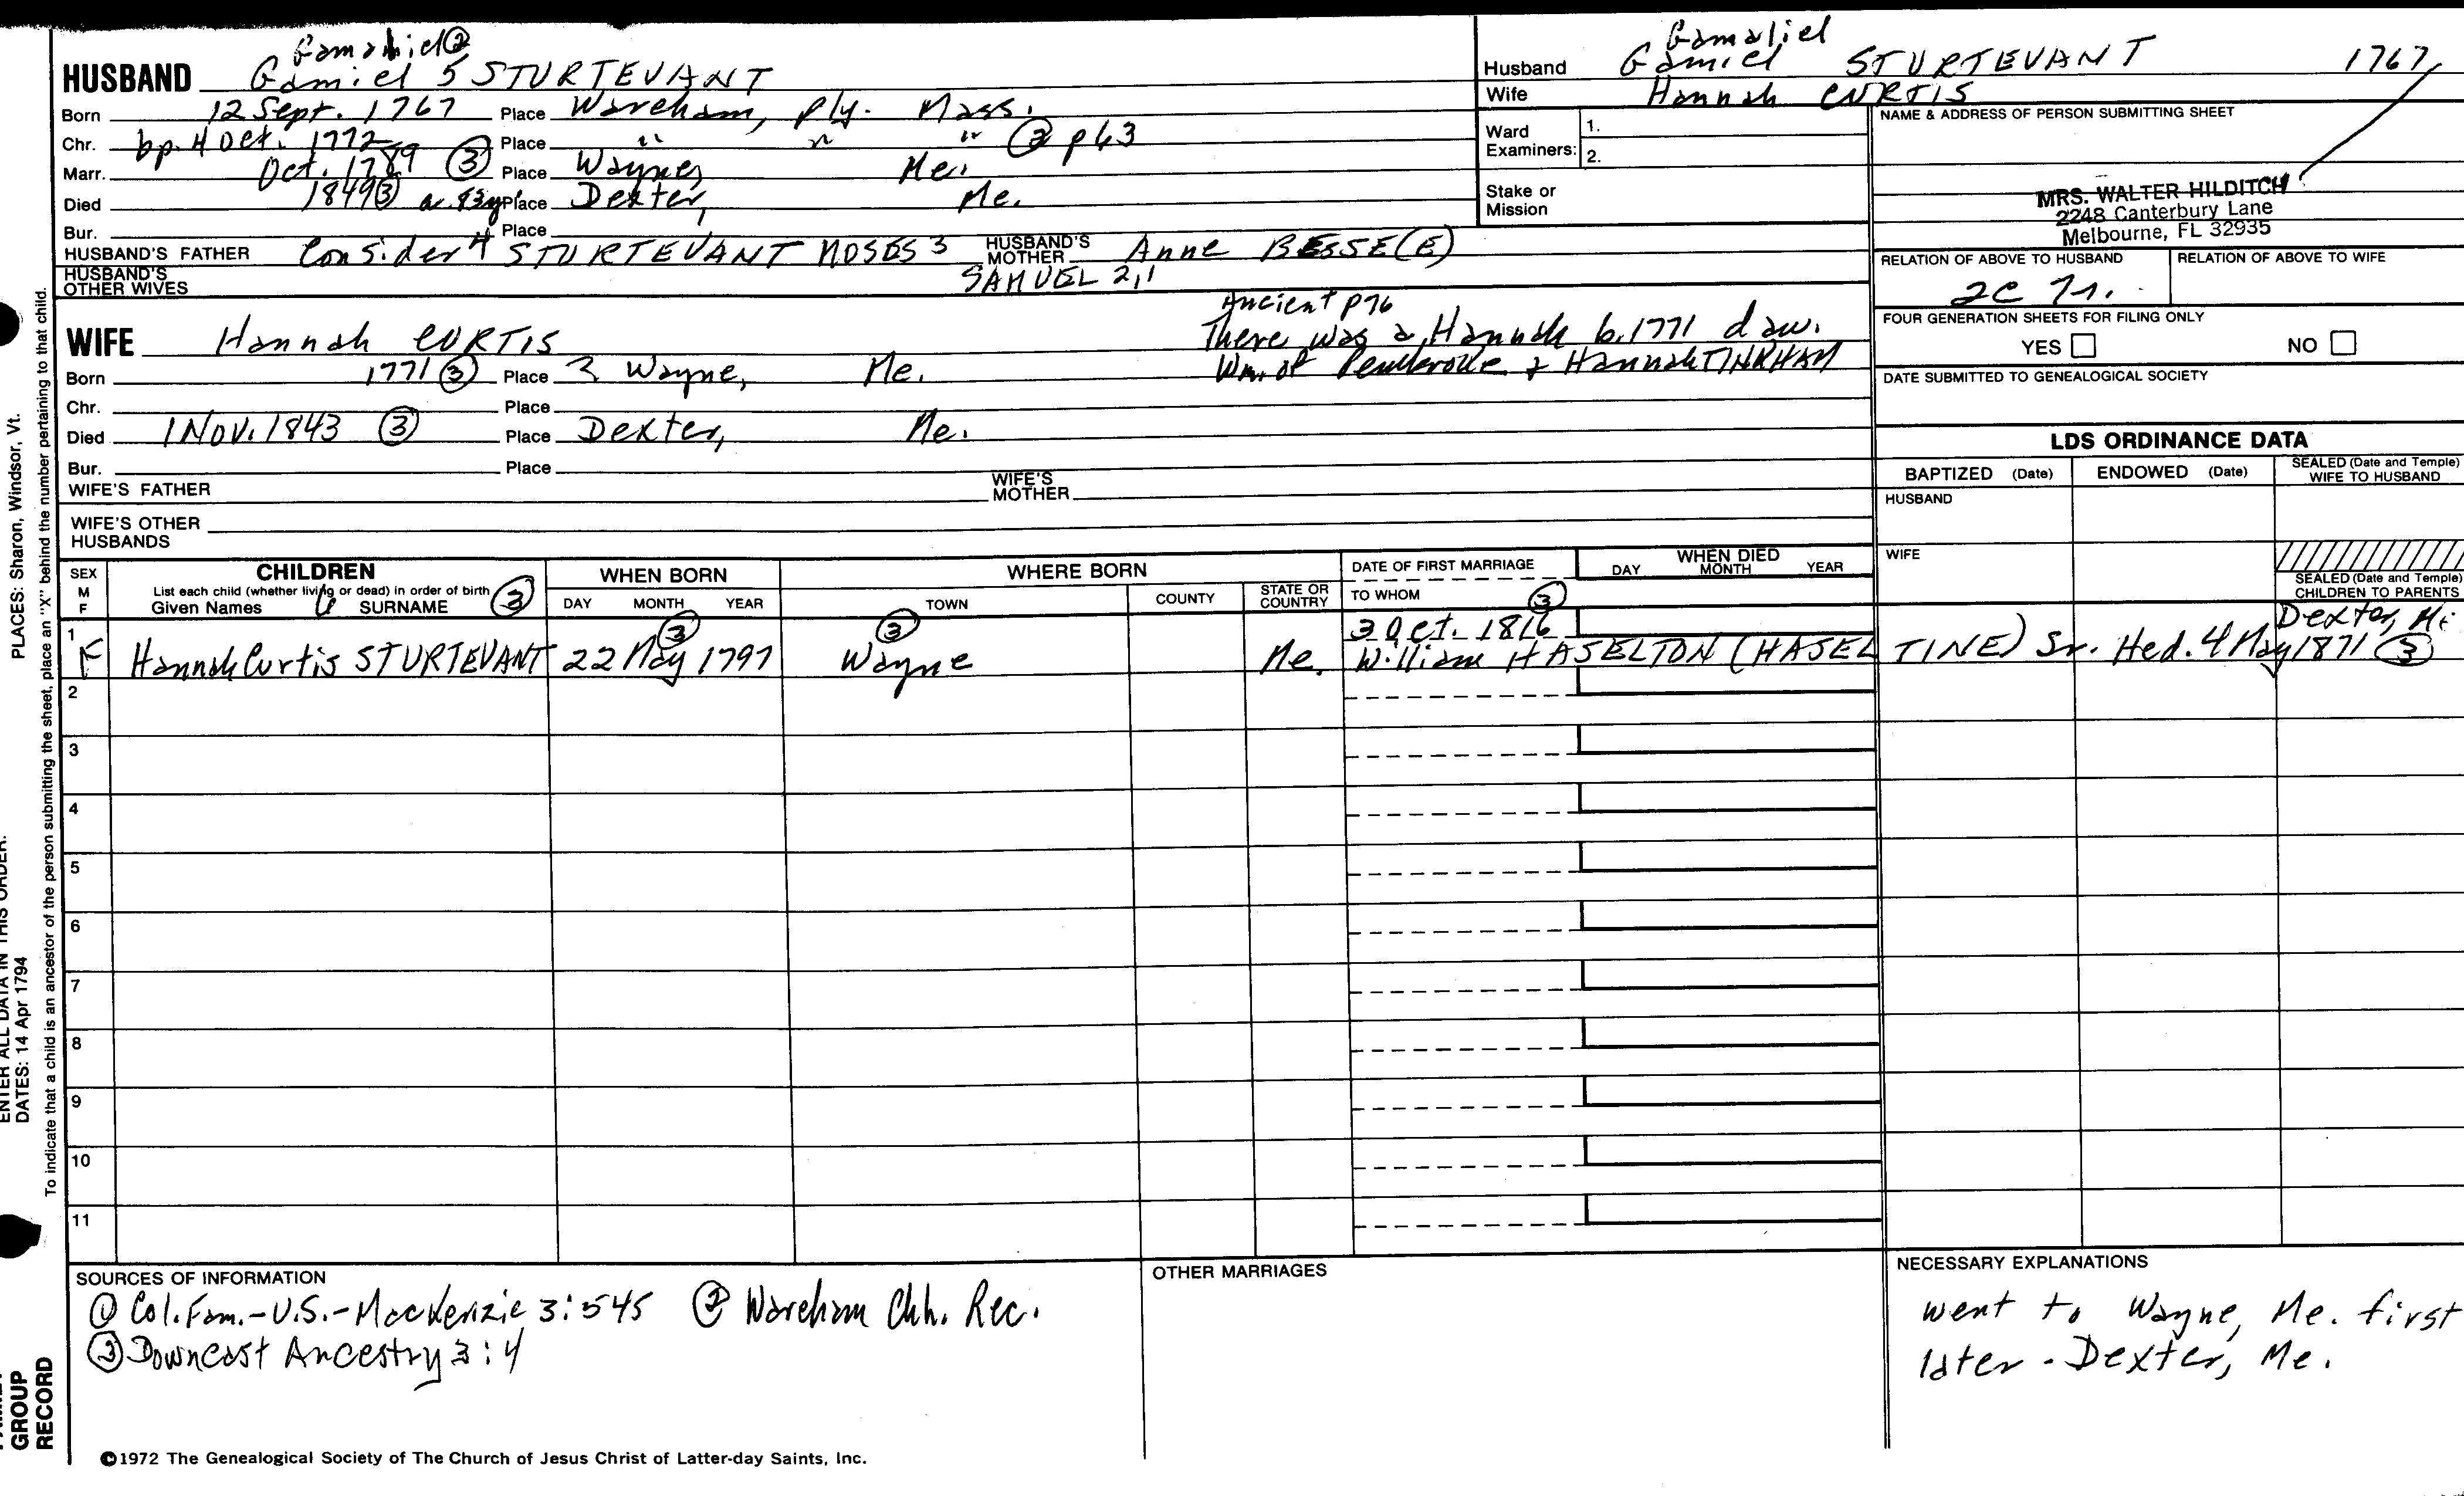 Gamaliel ②
HUSBAND Gamiel 5 STURTEVANT
Born 12 Sept. 1767 Place Wareham, Ply. Mass.
Chr. bp. 4 Oct. 1772 Place " " " ② p63
Marr. Oct. 1789 ③ Place Wayne, Me.
Died 1849 ③ a. 83y Place Dexter, Me.
Bur. Place
HUSBAND'S FATHER Consider 4 STURTEVANT MOSES 3 HUSBAND'S MOTHER Anne BESSE(E)
HUSBAND'S OTHER WIVES SAMUEL 2,1
Gamaliel
Husband Gamiel STURTEVANT 1767
Wife Hannah CURTIS
Ward Examiners: 1.
2.
Stake or Mission
NAME & ADDRESS OF PERSON SUBMITTING SHEET
MRS. WALTER HILDITCH
2248 Canterbury Lane
Melbourne, FL 32935
RELATION OF ABOVE TO HUSBAND RELATION OF ABOVE TO WIFE
2c 7r.
FOUR GENERATION SHEETS FOR FILING ONLY
YES NO
DATE SUBMITTED TO GENEALOGICAL SOCIETY
Ancient p76
There was a Hannah b. 1771 dau.
Wm. of Pembroke & Hannah TINKHAM
WIFE Hannah CURTIS
Born 1771 ③ Place ? Wayne, Me.
Chr. Place
Died 1 Nov. 1843 ③ Place Dexter, Me.
Bur. Place
WIFE'S FATHER WIFE'S MOTHER
WIFE'S OTHER HUSBANDS
LDS ORDINANCE DATA
BAPTIZED (Date) ENDOWED (Date) SEALED (Date and Temple) WIFE TO HUSBAND
HUSBAND
WIFE
SEALED (Date and Temple) CHILDREN TO PARENTS
SEX M F
CHILDREN
List each child (whether living or dead) in order of birth ③
Given Names SURNAME
WHEN BORN
DAY MONTH YEAR
WHERE BORN
TOWN COUNTY STATE OR COUNTRY
DATE OF FIRST MARRIAGE
TO WHOM ③
WHEN DIED
DAY MONTH YEAR
③ ③ 3 Oct. 1816 Dexter, Me.
1 F Hannah Curtis STURTEVANT 22 May 1797 Wayne Me. William HASELTON (HASELTINE) Sr. Hed. 4 May 1871 ③
2
3
4
5
6
7
8
9
10
11
SOURCES OF INFORMATION
① Col. Fam.-U.S.-MacKenzie 3:545 ② Wareham Chh. Rec.
③ Downeast Ancestry 3:4
OTHER MARRIAGES
NECESSARY EXPLANATIONS
went to Wayne, Me. first
later - Dexter, Me.
©1972 The Genealogical Society of The Church of Jesus Christ of Latter-day Saints, Inc.
PLACES: Sharon, Windsor, Vt.
ENTER ALL DATA IN THIS ORDER:
DATES: 14 Apr 1794
To indicate that a child is an ancestor of the person submitting the sheet, place an "X" behind the number pertaining to that child.
GROUP
RECORD